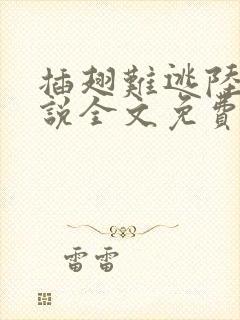 插翅難逃陸
說全文免費
雷雷